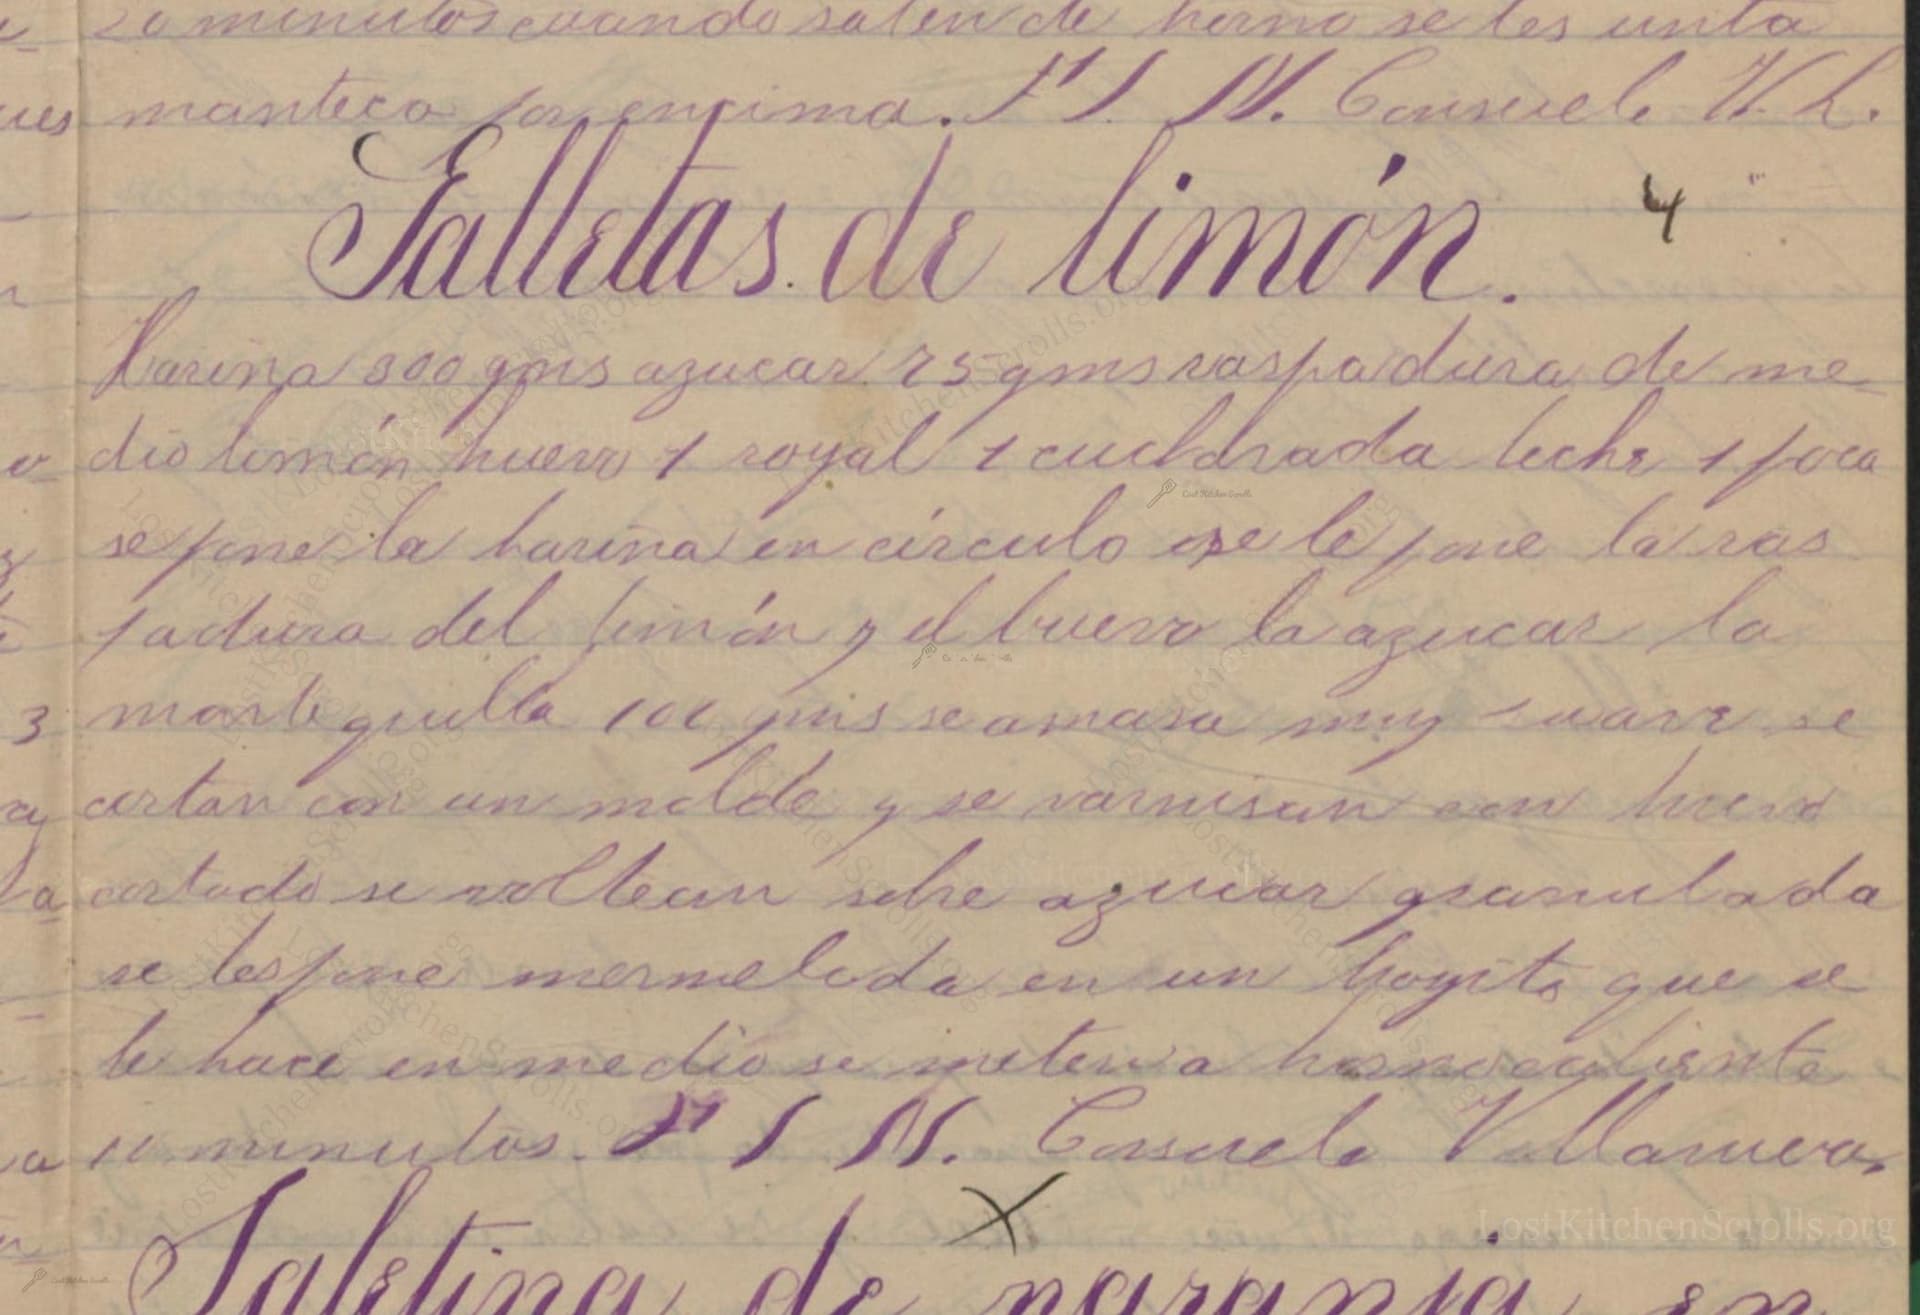 20 minutos cuando salen de horno se les unta
manteca por encima. F I N. Consuelo V. L.
Galletas de limón. 4
Harina 300 gms azucar 75 gms raspadura de me-
dio limón huevo 1 royal 1 cucharada leche 1 poca
se pone la harina en círculo se le pone la ras
padura del limón y el huevo la azucar la
mantequilla 100 gms se amasa muy suave se
cortan con un molde y se varnisan con huevo
cortado se voltean sobre azucar granulada
se les pone mermelada en un hoyito que se
le hace en medio se meten a horno caliente
10 minutos. F I N. Consuelo Villanueva.
Galetina de naranja en
LostKitchenScrolls.org